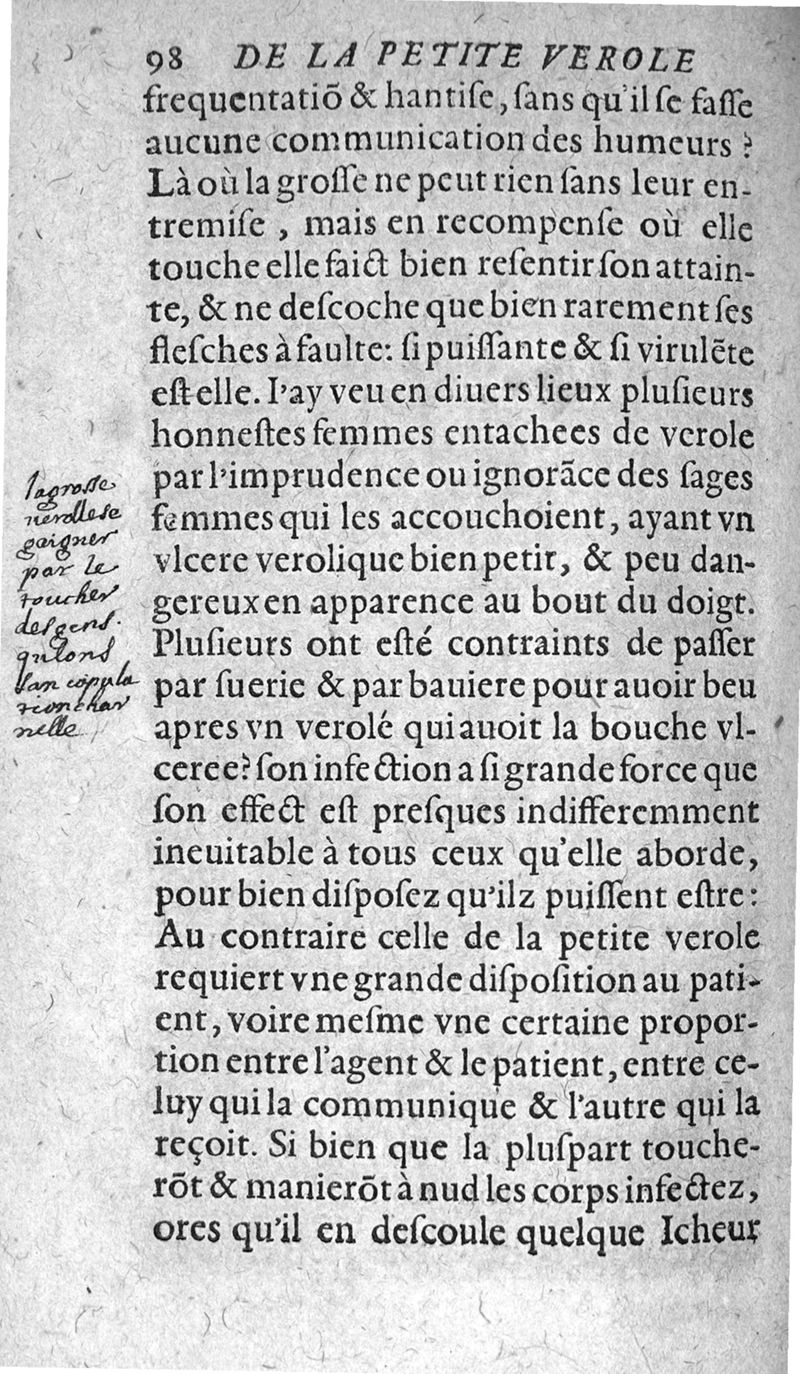 98 DE LA PETITE VEROLE
frequentatiõ & hantiſe, ſans qu'il ſe faſſe
aucune communication des humeurs ?
Là où la groſſe ne peut rien ſans leur en-
tremiſe , mais en recompenſe où elle
touche elle faict bien reſentir ſon attain-
te, & ne deſcoche que bien rarement ſes
fleſches à faulte: ſi puiſſante & ſi virulẽte
eſt elle. I'ay veu en diuers lieux pluſieurs
honneſtes femmes entachees de verole
par l'imprudence ou ignorãce des ſages
femmes qui les accouchoient, ayant vn
vlcere verolique bien petit, & peu dan-
gereux en apparence au bout du doigt.
Pluſieurs ont eſté contraints de paſſer
par ſuerie & par bauiere pour auoir beu
apres vn verolé qui auoit la bouche vl-
ceree? ſon infection a ſi grande force que
ſon effect eſt preſques indifferemment
ineuitable à tous ceux qu'elle aborde,
pour bien diſpoſez qu'ilz puiſſent eſtre:
Au contraire celle de la petite verole
requiert vne grande diſpoſition au pati-
ent, voire meſme vne certaine propor-
tion entre l'agent & le patient, entre ce-
luy qui la communique & l'autre qui la
reçoit. Si bien que la pluſpart touche-
rõt & manierõt à nud les corps infectez,
ores qu'il en deſcoule quelque Icheur
la grosse
verolle se
gaigner
par le
toucher
des gens
san copula
tion char
nelle